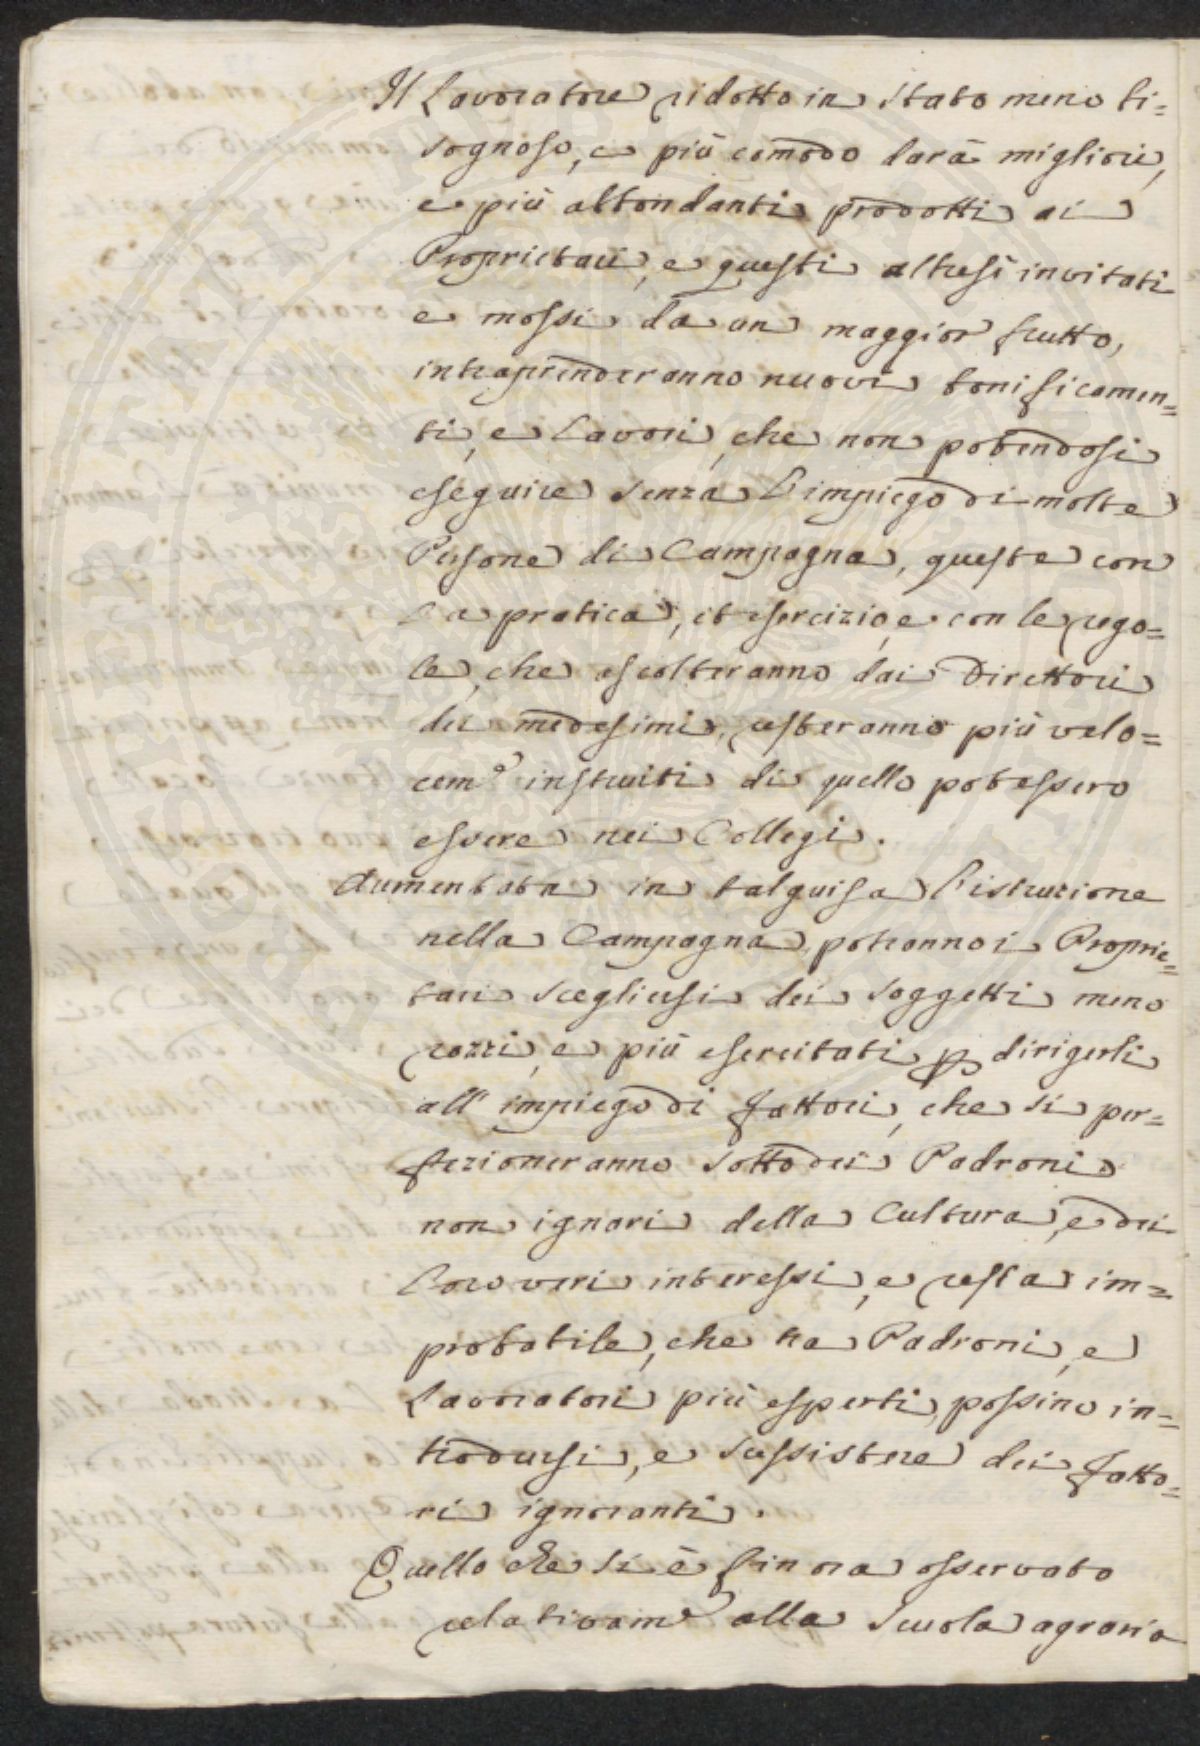 Il Lavoratore ridotto in stato meno bi=
sognoso, e più comodo darà migliori,
e più abbondanti prodotti ai
Proprietari, e questi altresì invitati
e mossi da un maggior frutto,
intraprenderanno nuovi bonificamen=
ti, e Lavori, che non potendosi
eseguire senza l'impiego di molte
Persone di Campagna, queste con
la pratica, et esercizio, e con le rego=
le, che ascolteranno dai Direttori
dei medesimi, resteranno più velo=
cem.e instruiti di quello potessero
essere nei Collegi.
Aumentata in tal guisa l'istruzione
nella Campagna, potranno i Proprie=
tari scegliersi dei soggetti meno
rozzi, e più esercitati p dirigerli
all'impiego di fattori, che si per=
fezioneranno sotto dei Padroni
non ignari della Cultura, e dei
loro veri interessi, e resta im=
probabile, che tra Padroni, e
Lavoratori più esperti, possino in=
trodursi, e sussistere dei fatto=
ri ignoranti.
Quello che si è fin ora osservato
relativam.e alla Scuola agraria